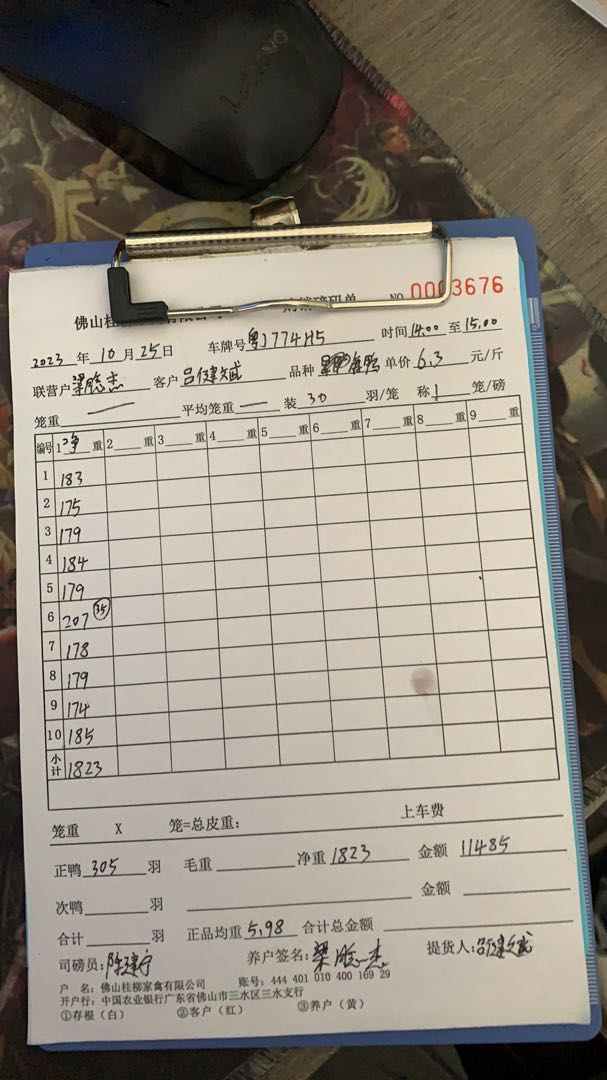 Lenovo
佛山桂
购销磅码单 NO 0003676
2023 年 10 月 25 日 车牌号 粤J774H5 时间 14:00 至 15:00
联营户 梁聪杰 客户 吕健斌 品种 单价 6.3 元/斤
笼重 — 平均笼重 — 装 30 羽/笼 称 1 笼/磅
编号 1 净 重 2 重 3 重 4 重 5 重 6 重 7 重 8 重 9 重
1 183
2 175
3 179
4 184
5 179
6 207 35
7 178
8 179
9 174
10 185
小计 1823
笼重 X 笼=总皮重: 上车费
正鸭 305 羽 毛重 净重 1823 金额 11485
次鸭 羽 金额
合计 羽 正品均重 5.98 合计总金额
司磅员: 陈建宇 养户签名: 梁聪杰 提货人: 吕健斌
户 名: 佛山桂柳家禽有限公司 账号: 444 401 010 400 169 29
开户行: 中国农业银行广东省佛山市三水区三水支行
①存根（白） ②客户（红） ③养户（黄）